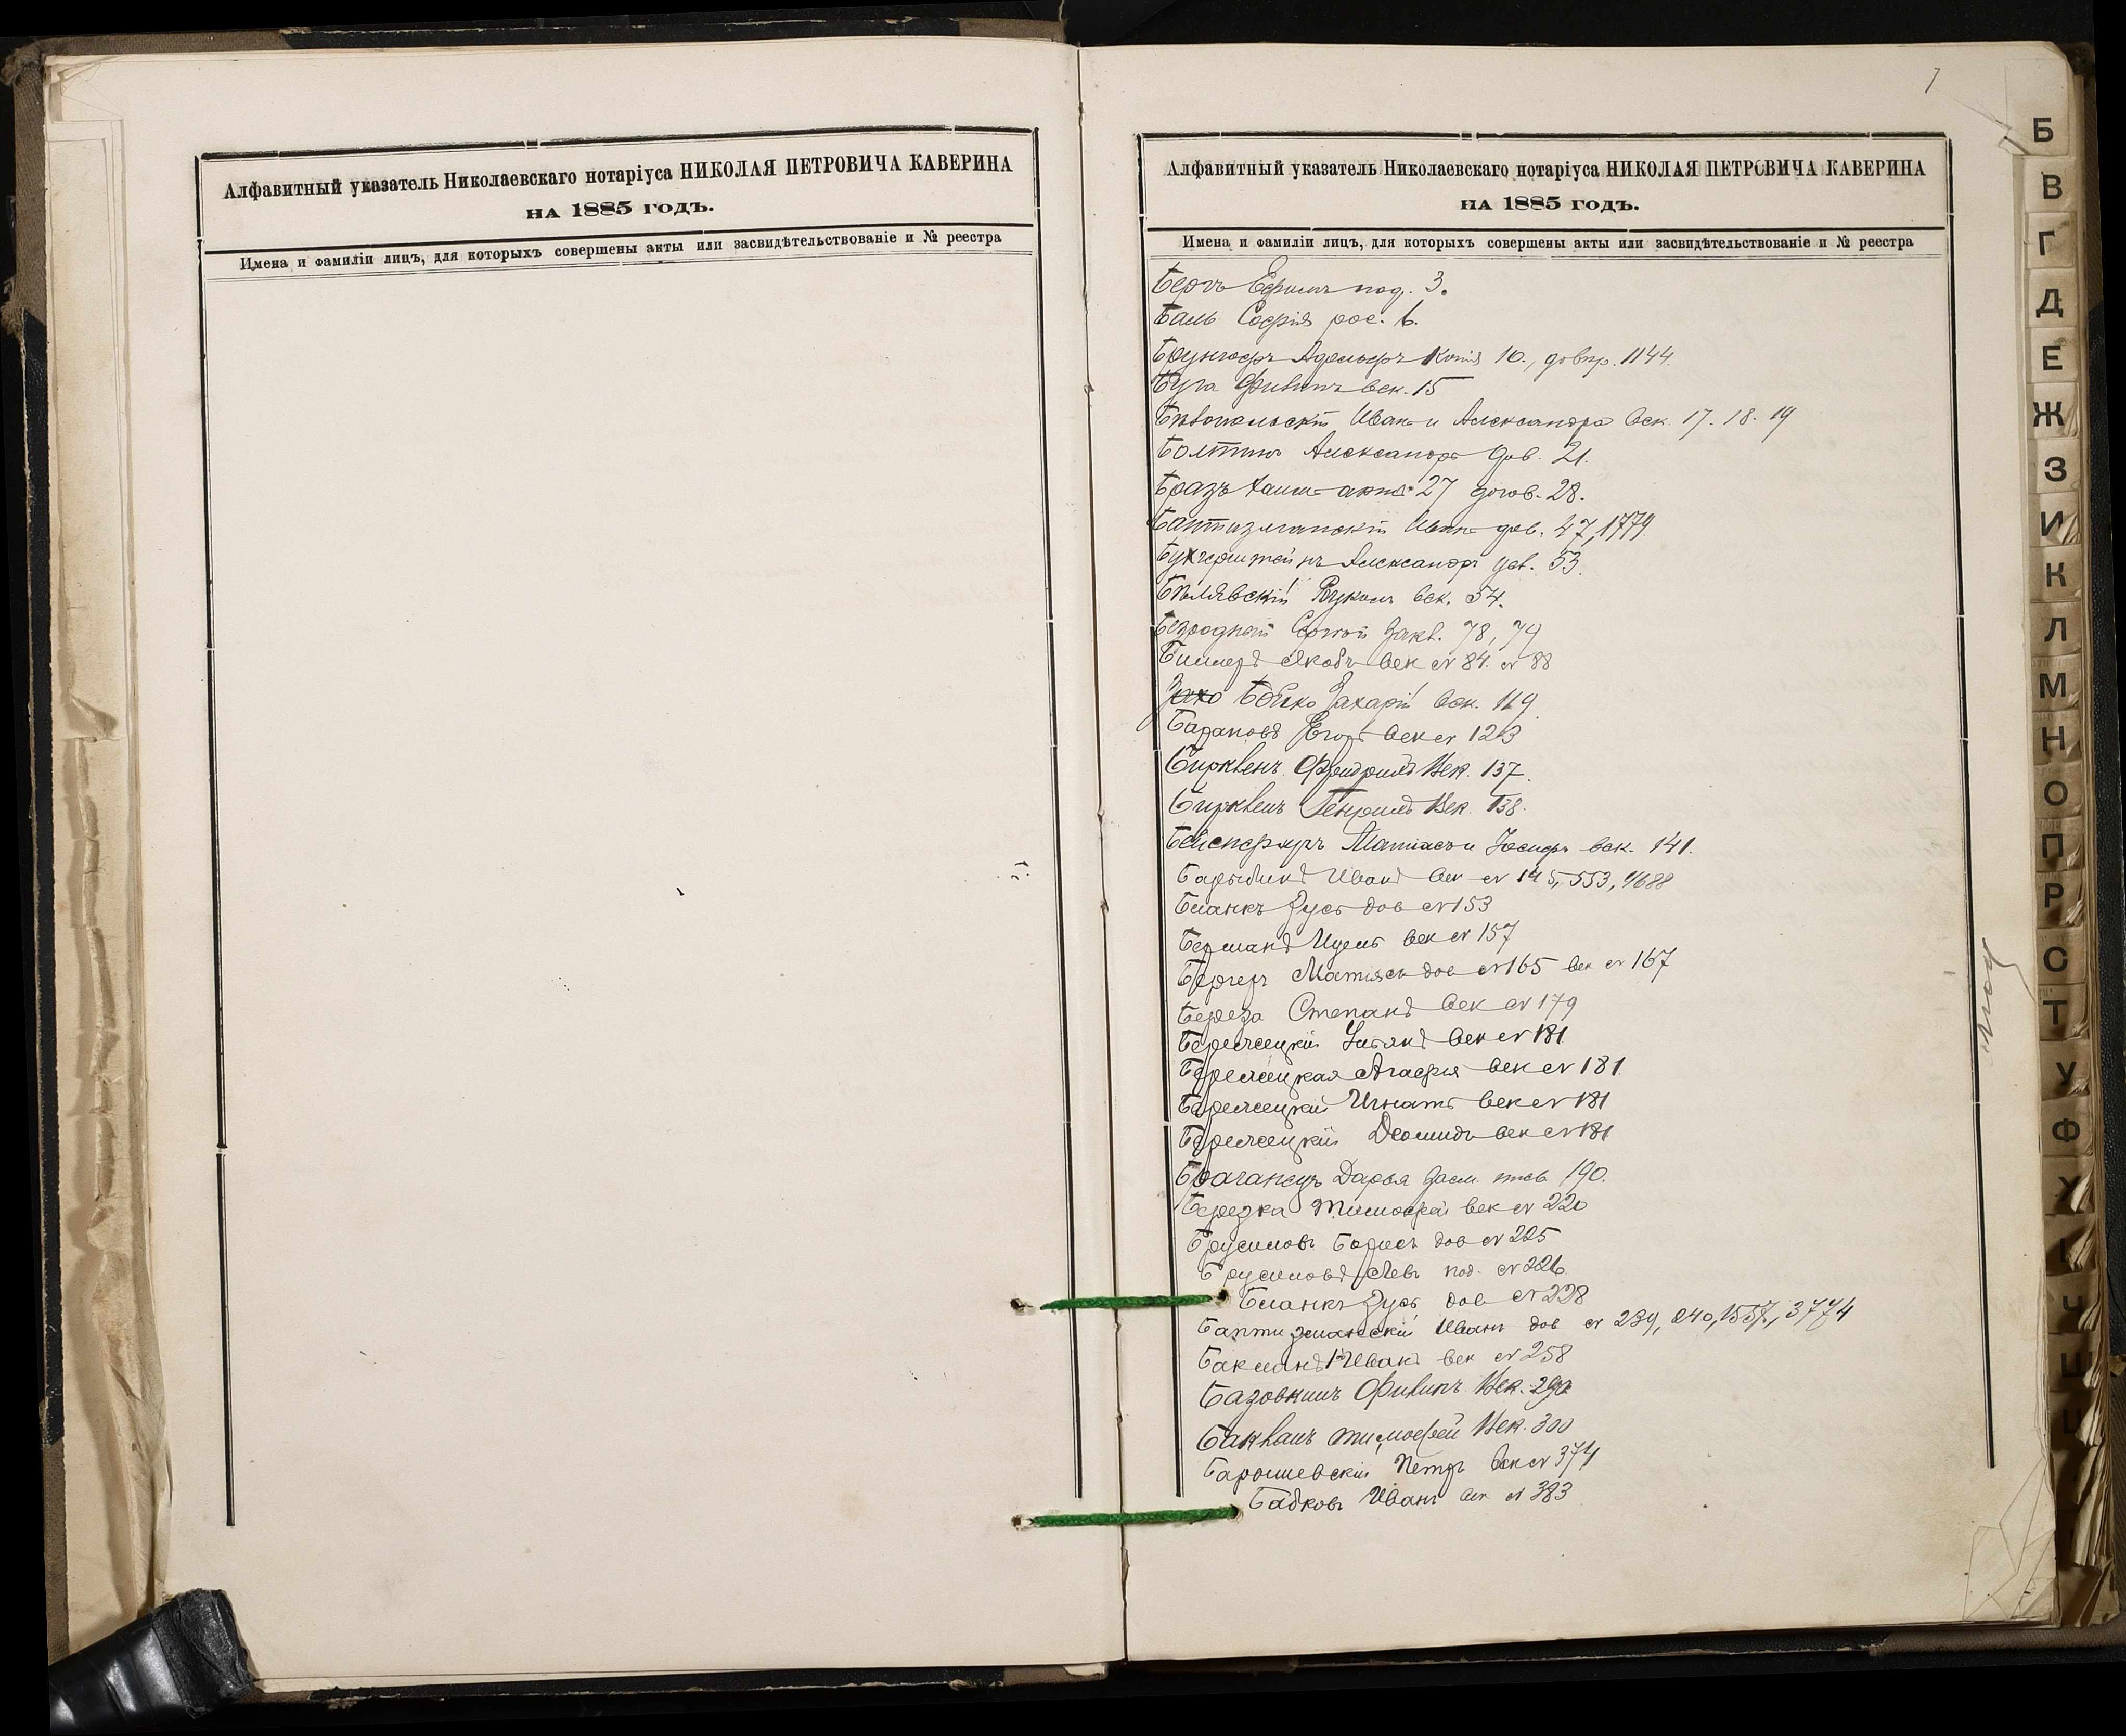 Алфавитный указатель Николаевскаго нотаріуса НИКОЛАЯ ПЕТРОВИЧА КАВЕРИНА
НА 1885 ГОДЪ.
Имена и фамиліи лицъ, для которыхъ совершены акты или засвидѣтельствованіе и № реестра
7
Алфавитный указатель Николаевскаго нотаріуса НИКОЛАЯ ПЕТРОВИЧА КАВЕРИНА
НА 1885 ГОДЪ.
Имена и фамиліи лицъ, для которыхъ совершены акты или засвидѣтельствованіе и № реестра
Бергъ Ефимъ под. 3.
Баль Софія рос. 6.
Адольфъ копія 10., довѣр. 1144
Буга Филипъ век. 15
Иванъ и Александра век. 17. 18. 19
Болтинъ Александръ дов. 21.
Бразъ Хаимъ 27 догов. 28.
Баптизманскій Иванъ дов. 47, 1779
Александръ 53.
Бѣлявскій век. 54.
Безродный 78, 79
Яковъ век № 84. № 88
Бойко Захарій век. 119
Барановъ Егоръ век № 123
Биркленъ Фридрихъ Век. 137.
Биркленъ Генрихъ Век. 138.
Матіасъ и Іосифъ век. 141.
Барыбинъ Иванъ век № 145, 553, 4688
Бланкъ Зусь дов № 153
Берманъ Ицель век № 157
Бергеръ Матіясъ дов № 165 век № 167
Береза Степанъ век № 179
Бережецкій Ульянъ век № 181
Бережецкая Агафія век № 181
Бережецкій Игнатъ век № 181
Бережецкій Деомидъ век № 181
Браганецъ Дарья 190.
Тимофей век № 220
Брусиловъ Борисъ дов № 225
Брусиловъ Левъ под. № 226
Бланкъ Зусь дов № 228
Баптизманскій Иванъ дов № 239, 240, 1557, 3774
Бакманъ Иванъ век № 258
Филипъ Век. 290
Бакланъ Тимофей Век. 300
Барошевскій Петръ век № 374
Бабковъ Иванъ век № 383
Б
В
Г
Д
Е
Ж
З
И
К
Л
М
Н
О
П
Р
С
Т
У
Ф
Х
Ч
Ш